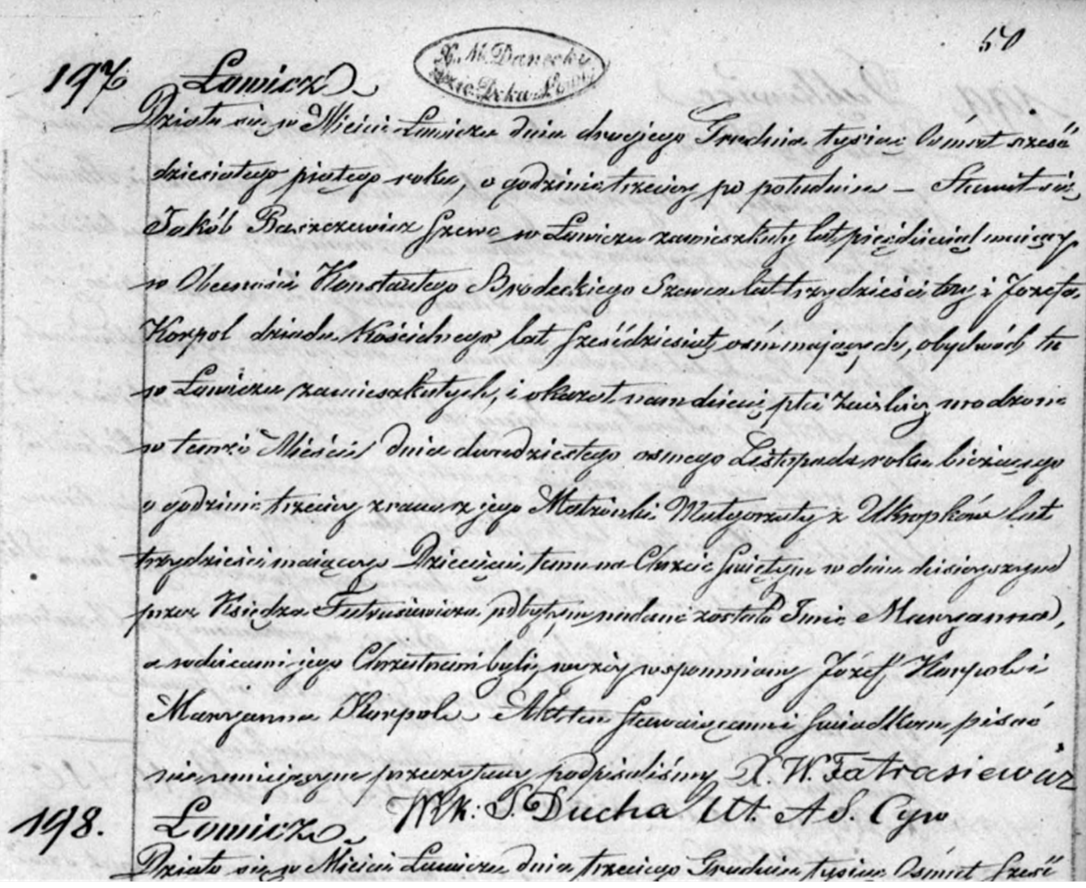 50
X. M. Danecki
197. Łowicz
Działo się w Mieście Łowiczu dnia drugiego Grudnia tysiąc Ośmset sześć
dziesiątego piątego roku, o godzinie trzeciej po południu – Stawił się
Jakób Baszczewicz Szewc w Łowiczu zamieszkały lat pięćdziesiąt mający
w Obecności Konstantego Brodeckiego Szewca lat trzydzieści trzy i Józefa
Karpol dziada Kościelnego lat sześćdziesiąt ośm mających, obydwóch tu
w Łowiczu zamieszkałych, i okazał nam dziecię płci żeńskiej urodzone
w temże Mieście dnia dwudziestego osmego Listopada roku bieżącego
o godzinie trzeciej z rana z jego Małżonki Małgorzaty z Ukropków lat
trzydzieści mającej Dziecięciu temu na Chrzcie Świętym w dniu dzisiejszym
przez Księdza Fatrasiewicza odbytem nadane zostało Imie Maryanna,
a rodzicami jego Chrzestnemi byli, wyżej wspomniany Józef Karpol i
Maryanna Karpol. Akt ten stawaiącemu i świadkom pisać
nieumiejącym przeczytany podpisaliśmy X. W. Fatrasiewicz
Wik: S. Ducha Ut. A S. Cyw
198. Łowicz
Działo się w Mieście Łowiczu dnia trzeciego Grudnia tysiąc Ośmset Sześć